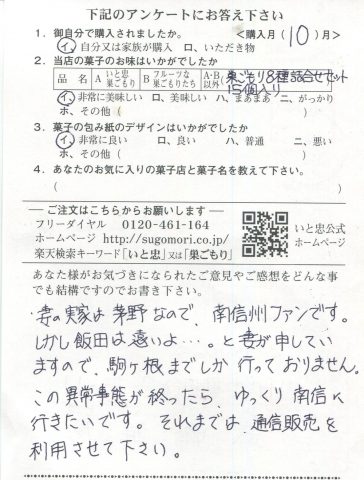 下記のアンケートにお答え下さい
1. 御自分で購入されましたか。 <購入月(10)月>
イ、自分又は家族が購入 ロ、いただき物
2. 当店の菓子のお味はいかがでしたか
品名 A いと忠巣ごもり B フルーツな巣ごもりたち A・B以外 巣ごもり8種詰合せセット 15個入り
イ、非常に美味しい ロ、美味しい ハ、まあまあ ニ、がっかり
ホ、その他(
3. 菓子の包み紙のデザインはいかがでしたか
イ、非常に良い ロ、良い ハ、普通 ニ、悪い
ホ、その他( )
4. あなたのお気に入りの菓子店と菓子名を教えて下さい。
( )
ご注文はこちらからお願いします
フリーダイヤル 0120-461-164
ホームページ http://sugomori.co.jp/
楽天検索キーワード「いと忠」又は「巣ごもり」
いと忠公式
ホームページ
あなた様がお気づきになられたご意見やご感想をどんな事
でも結構ですのでお書き下さい。
・妻の実家は茅野なので、南信州ファンです。
しかし飯田は遠いよ…。と妻が申してい
ますので、駒ヶ根までしか行っておりません。
この異常事態が終ったら、ゆっくり南信に
行きたいです。それまでは、通信販売を
利用させて下さい。